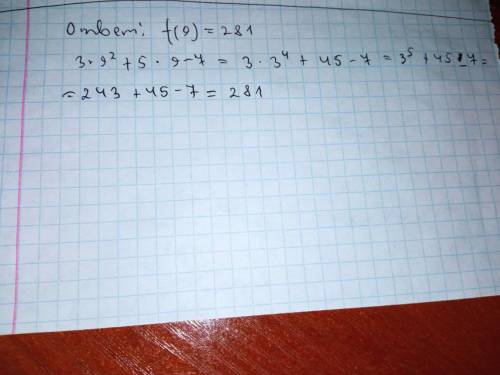 Ответ: f(9) = 281
3 · 9² + 5 · 9 - 7 = 3 · 3⁴ + 45 - 7 = 3⁵ + 45 - 7 =
= 243 + 45 - 7 = 281